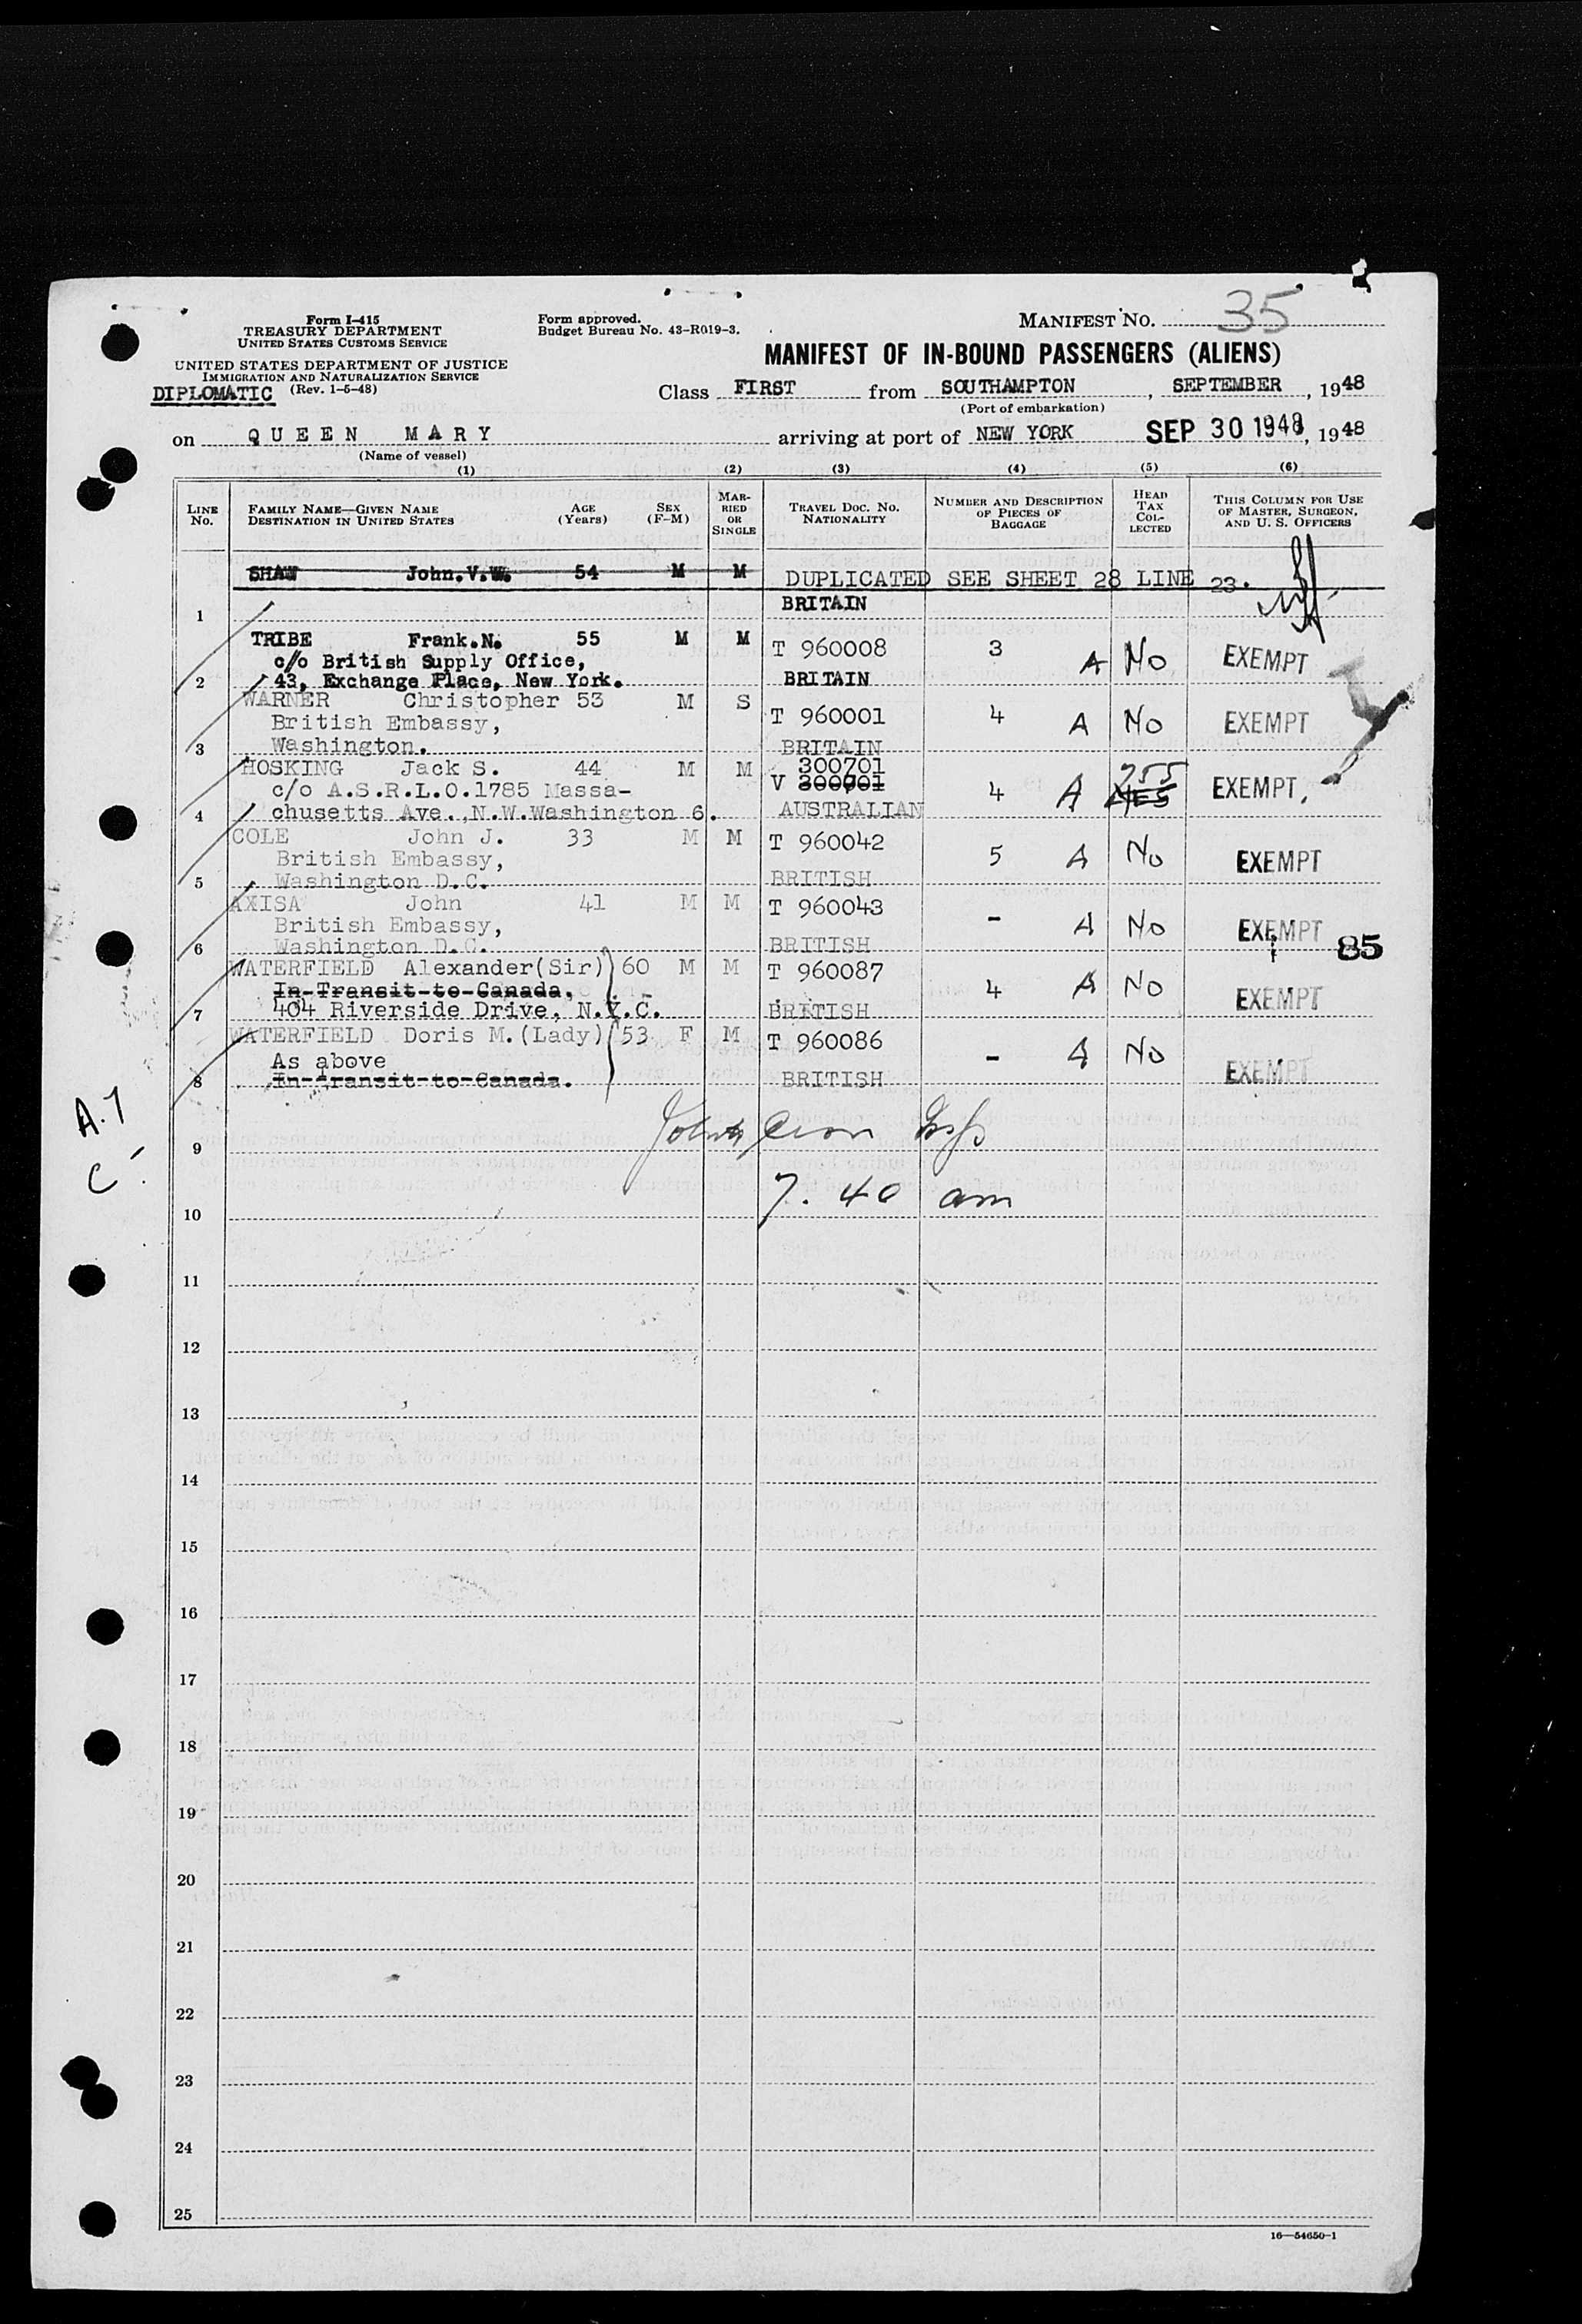 Form I-415
TREASURY DEPARTMENT
UNITED STATES CUSTOMS SERVICE
UNITED STATES DEPARTMENT OF JUSTICE
IMMIGRATION AND NATURALIZATION SERVICE
(Rev. 1-5-48)
DIPLOMATIC
Form approved.
Budget Bureau No. 43-R019-3.
MANIFEST NO. 35
MANIFEST OF IN-BOUND PASSENGERS (ALIENS)
Class FIRST from SOUTHAMPTON, SEPTEMBER, 1948
(Port of embarkation)
on QUEEN MARY arriving at port of NEW YORK SEP 30 1948, 1948
(Name of vessel)
(1) (2) (3) (4) (5) (6)
LINE No. FAMILY NAME—GIVEN NAME DESTINATION IN UNITED STATES AGE (Years) SEX (F-M) MARRIED OR SINGLE TRAVEL DOC. NO. NATIONALITY NUMBER AND DESCRIPTION OF PIECES OF BAGGAGE HEAD TAX COLLECTED THIS COLUMN FOR USE OF MASTER, SURGEON, AND U. S. OFFICERS
SHAW John.V.W. 54 M M DUPLICATED SEE SHEET 28 LINE 23.
1 BRITAIN
TRIBE Frank.N. 55 M M T 960008 3 A No EXEMPT
c/o British Supply Office,
2 43, Exchange Place, New York. BRITAIN
WARNER Christopher 53 M S T 960001 4 A No EXEMPT
British Embassy,
3 Washington. BRITAIN
HOSKING Jack S. 44 M M 300701
V 300701 4 A YES YES EXEMPT.
c/o A.S.R.L.O.1785 Massa-
4 chusetts Ave.,N.W.Washington 6. AUSTRALIAN
COLE John J. 33 M M T 960042 5 A No EXEMPT
British Embassy,
5 Washington D.C. BRITISH
AXISA John 41 M M T 960043 - A No EXEMPT 85
British Embassy,
6 Washington D.C. BRITISH
WATERFIELD Alexander(Sir) 60 M M T 960087 4 A No EXEMPT
In-Transit-to-Canada,
7 404 Riverside Drive, N.Y.C. BRITISH
WATERFIELD Doris M.(Lady) 53 F M T 960086 - A No EXEMPT
As above
8 In-transit-to-Canada. BRITISH
A.1
C
9
7. 40 am
10
11
12
13
14
15
16
17
18
19
20
21
22
23
24
25
16—54650-1